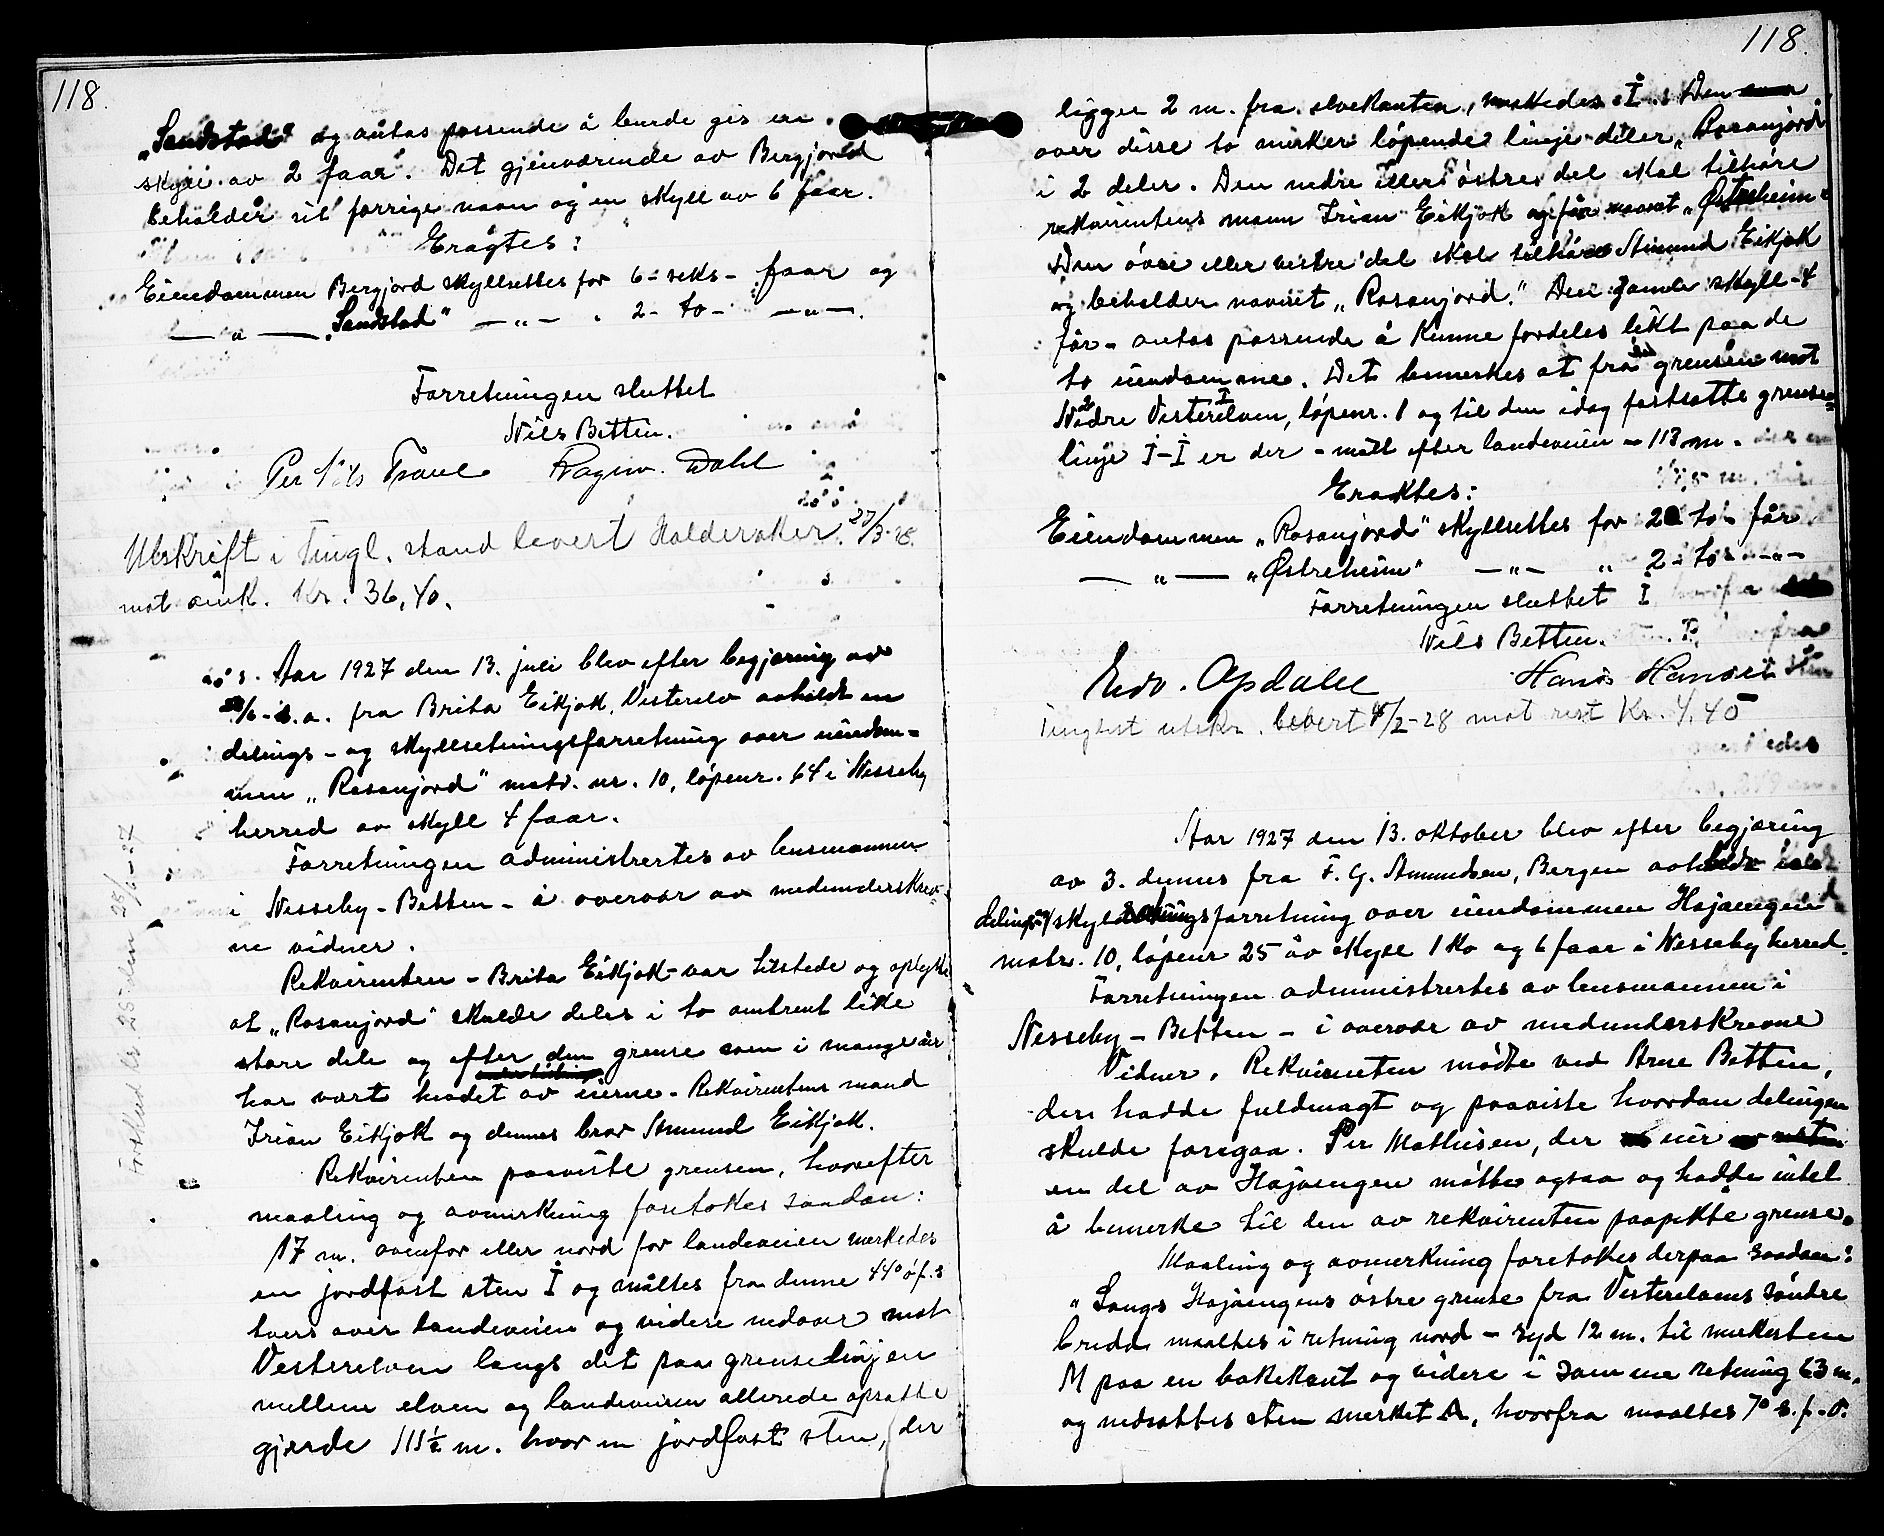 118.
„Sandstad" og antas passende å burde gis en
skyll av 2 faar. Det gjenværende av Bergjord
beholder sit forrige navn og en skyll av 6 faar.
Eragtes:
Eiendommen Bergjord skyllsettes for 6 - seks - faar og
— „ — „Sandstad" — „ — „ 2 - to - — „ —.
Forretningen sluttet
Nils Betten.
Per Nils Trane Ragnv. Dahl
Utskrift i Tingl. stand levert Halderaker 27/3-28.
mot omk. Kr. 36,40.
Aar 1927 den 13. juli blev efter begjæring av
/6 - s.a. fra Brita Eikjok, Vesterelv avholdt en
delings- og skyllsetningsforretning over eiendom-
men „Rosanjord" matr. nr. 10, löpenr. 64 i Nesseby
herred av skyll 4 faar.
Forretningen administrertes av lensmannen
i Nesseby - Betten - i overvær av medunderskrev-
ne vidner.
Rekvirenten - Brita Eikjok - var tilstede og oplyste
at „Rosanjord" skulde deles i to omtrent like
store dele og efter den grense som i mange aar
har vært hevdet av eierne. Rekvirentens mand
Irian Eikjok og dennes bror Amund Eikjok.
Rekvirenten paaviste grensen, hvorefter
maaling og avmerkning foretokes saadan:
17 m. ovenfor eller nord for landeveien merkedes
en jordfast sten I og måltes fra denne 44° ö.f.s
tvers over landeveien og videre nedover mot
Vesterelven langs det paa grenselinjen
mellem elven og landeveien allerede opsatte
gjærde 111½ m. hvor en jordfast sten, der
Forklad nr. 25 28/6-27
118.
ligger 2 m. fra elvekanten, merkedes I. Den
over disse to merker löpende linje deler „Rosanjord
i 2 deler. Den nedre eller östre del skal tilhöre
rekvirentens mann Irian Eikjok og får navnet „Østreheim"
Den övre eller vestre del skal tilhöre Amund Eikjok
og beholder navnet „Rosanjord." Den gamle skyll - 4
får - antas passende å kunne fordeles likt paa de
to eiendommer. Det bemerkes at fra den grensen mot
Nedre Vesterelven, löpenr. 1 og til den idag fastsatte grense-
linje I-I er der - målt efter landeveien - 118 m.
Eraktes:
Eiendommen „Rosanjord" skyllsettes for 2 to - får
— „ — „Østreheim" — „ — „ 2 - to - „ -
Forretningen sluttet
Nils Betten.
Edv. Opdahl Hans Hansen
Tinglest utskr. levert 4/2-28 mot rest Kr. 4,45
Aar 1927 den 13. oktober blev efter begjæring
av 3. dennes fra F. G. Amundsen, Bergen avholdt
delings / skyldsetningsforretning over eiendommen Högaengen
matr. 10, löpenr 25 av skyll 1 ko og 6 faar i Nesseby herred.
Forretningen administrertes av lensmannen i
Nesseby - Betten - i overvær av medunderskrevne
Vidner. Rekvirenten mödte ved Arne Betten,
der hadde fuldmagt og paaviste hvordan delingen
skulde foregaa. Per Mathisen, der eier
en del av Höjaengen mötte ogsaa og hadde intet
å bemerke til den av rekvirenten paapekte grense.
Maaling og avmerkning foretokes derpaa saadan:
„Langs Höjaengens östre grense fra Vesterelvens söndre
bredd maaltes i retning nord - syd 12 m. til merkesten
M paa en bakekant og videre i samme retning 63 m.
og nedsattes sten merket A, hvorfra maaltes 7° s.f.v.